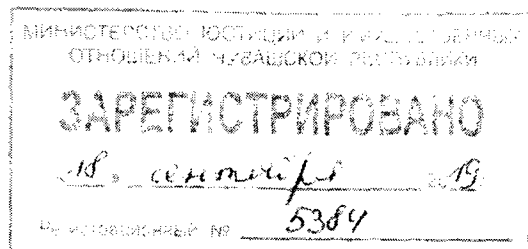 МИНИСТЕРСТВО ЮСТИЦИИ И ИМУЩЕСТВЕННЫХ
ОТНОШЕНИЙ ЧУВАШСКОЙ РЕСПУБЛИКИ
ЗАРЕГИСТРИРОВАНО
18 сентября 2019
РЕГИСТРАЦИОННЫЙ № 5384